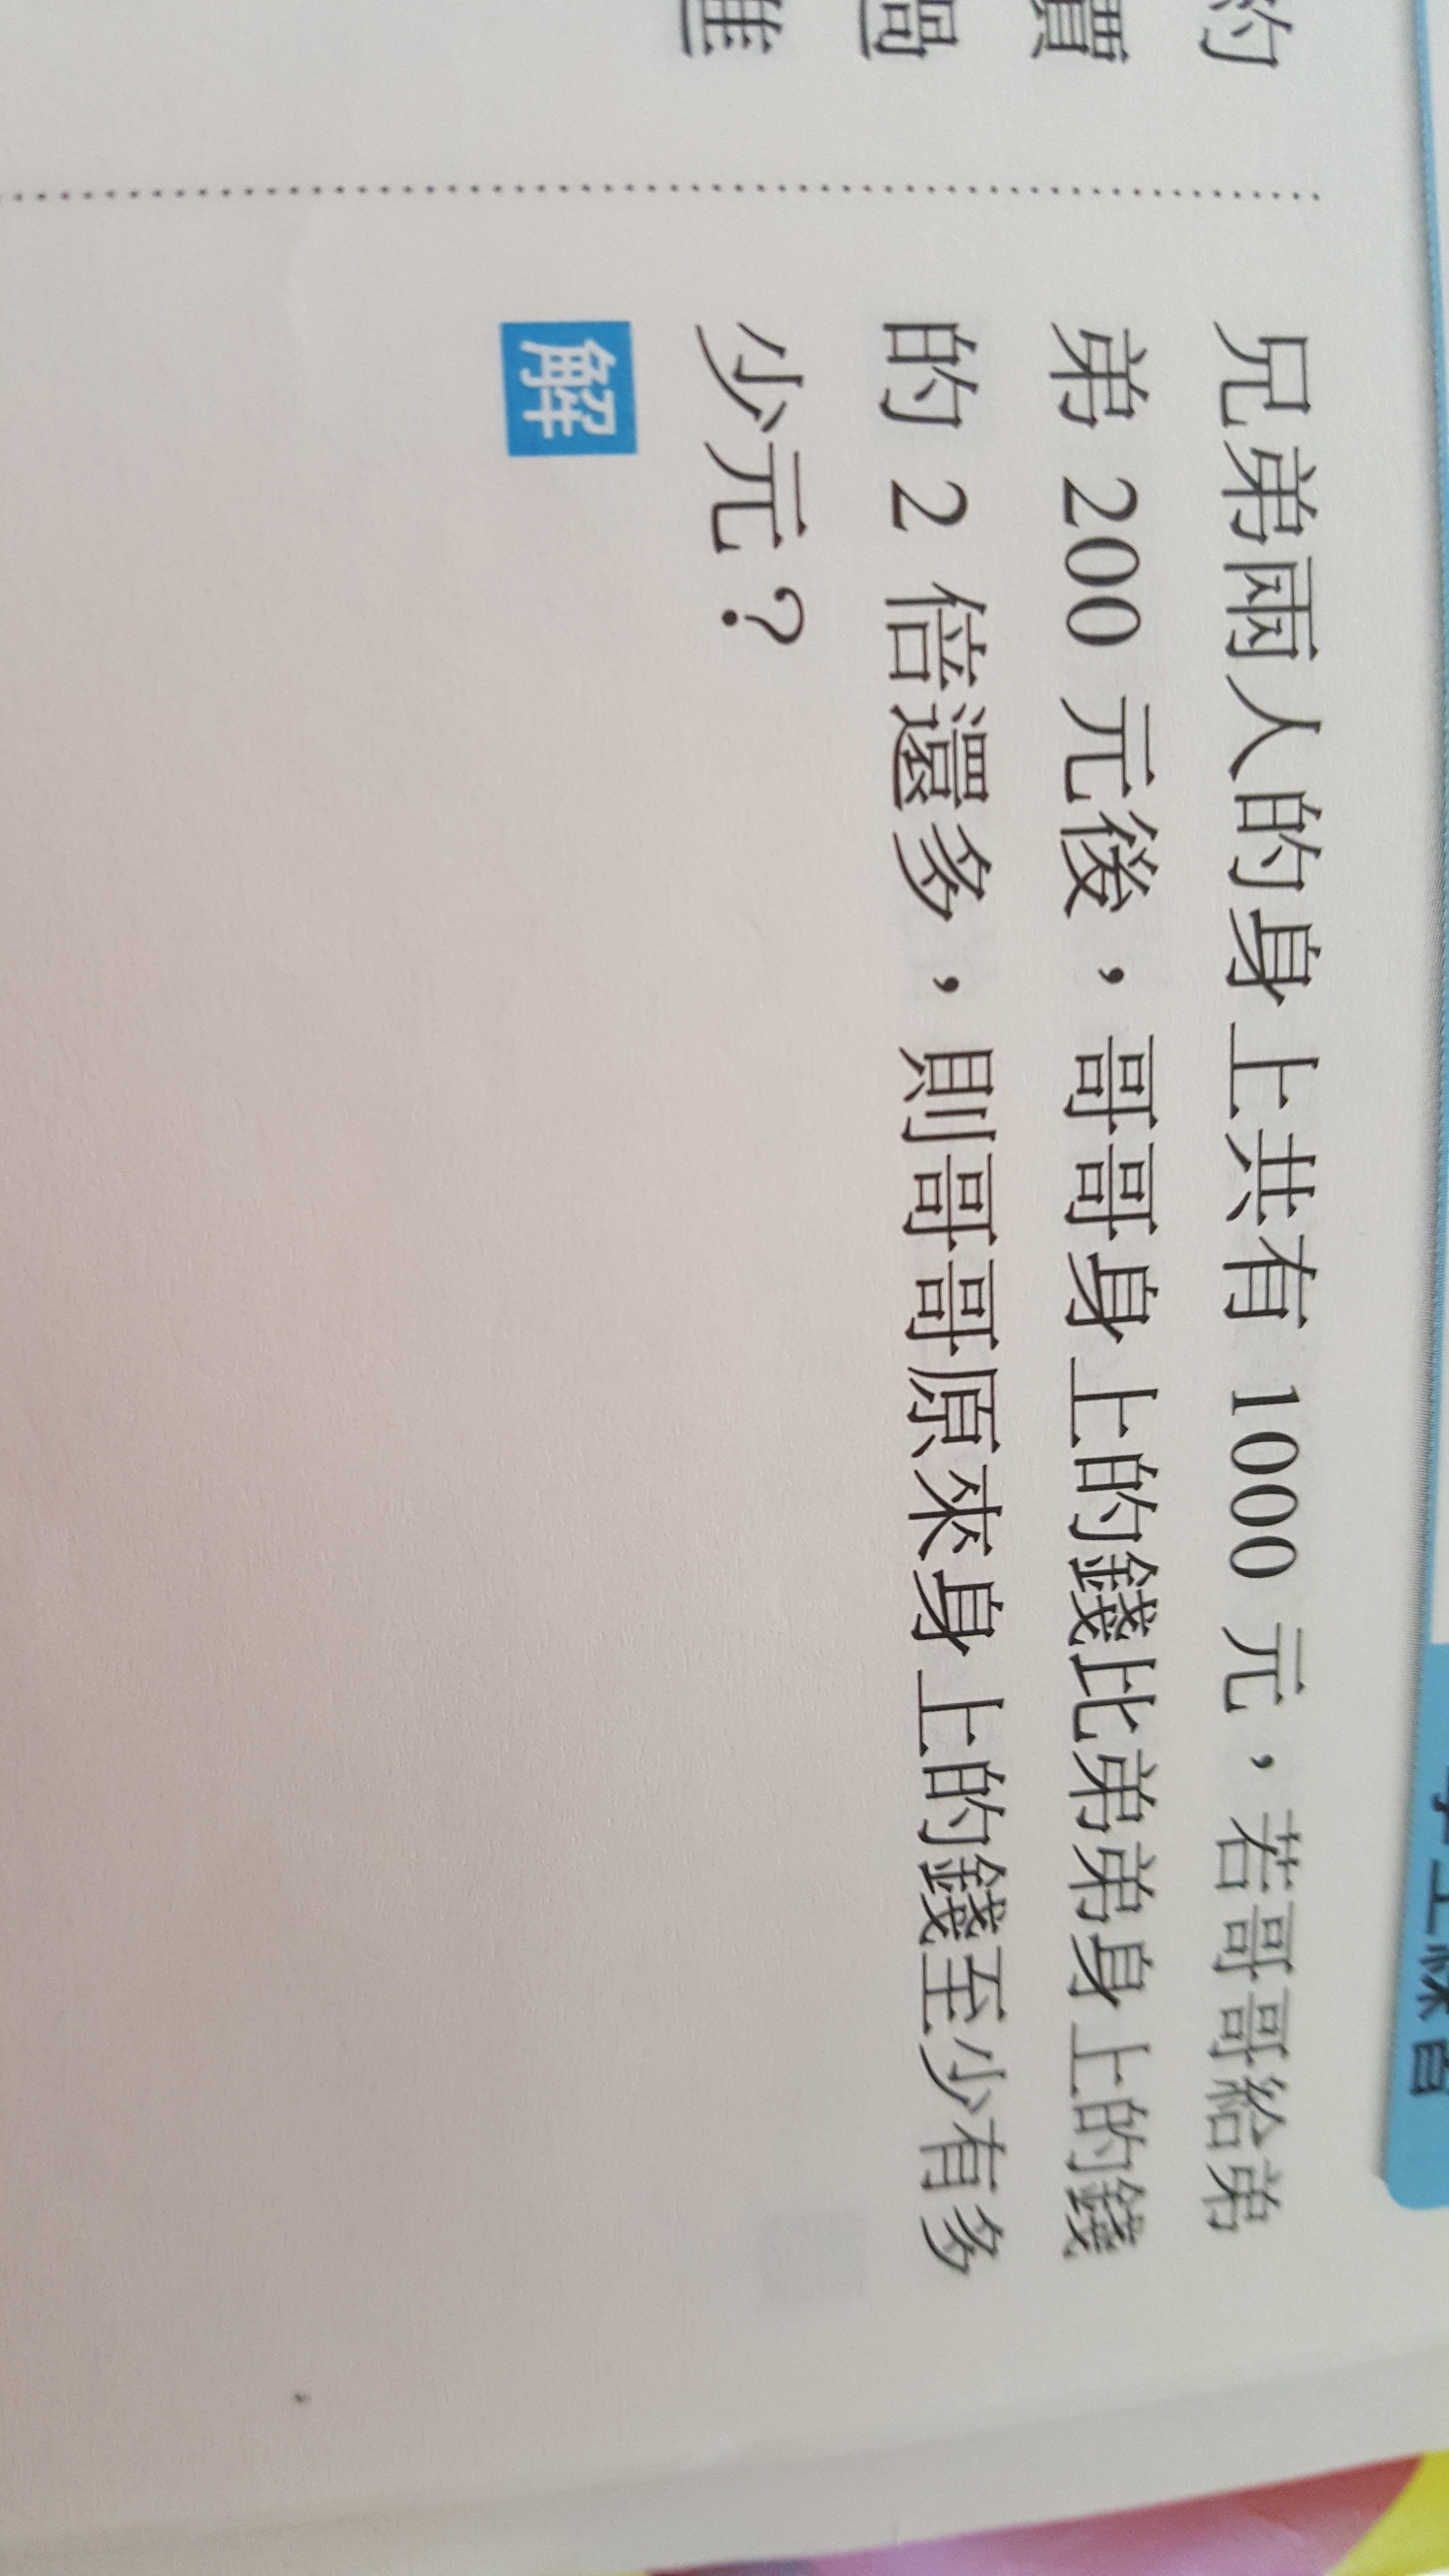 兄弟兩人的身上共有 1000 元，若哥哥給弟
弟 200 元後，哥哥身上的錢比弟弟身上的錢
的 2 倍還多，則哥哥原來身上的錢至少有多
少元？
解